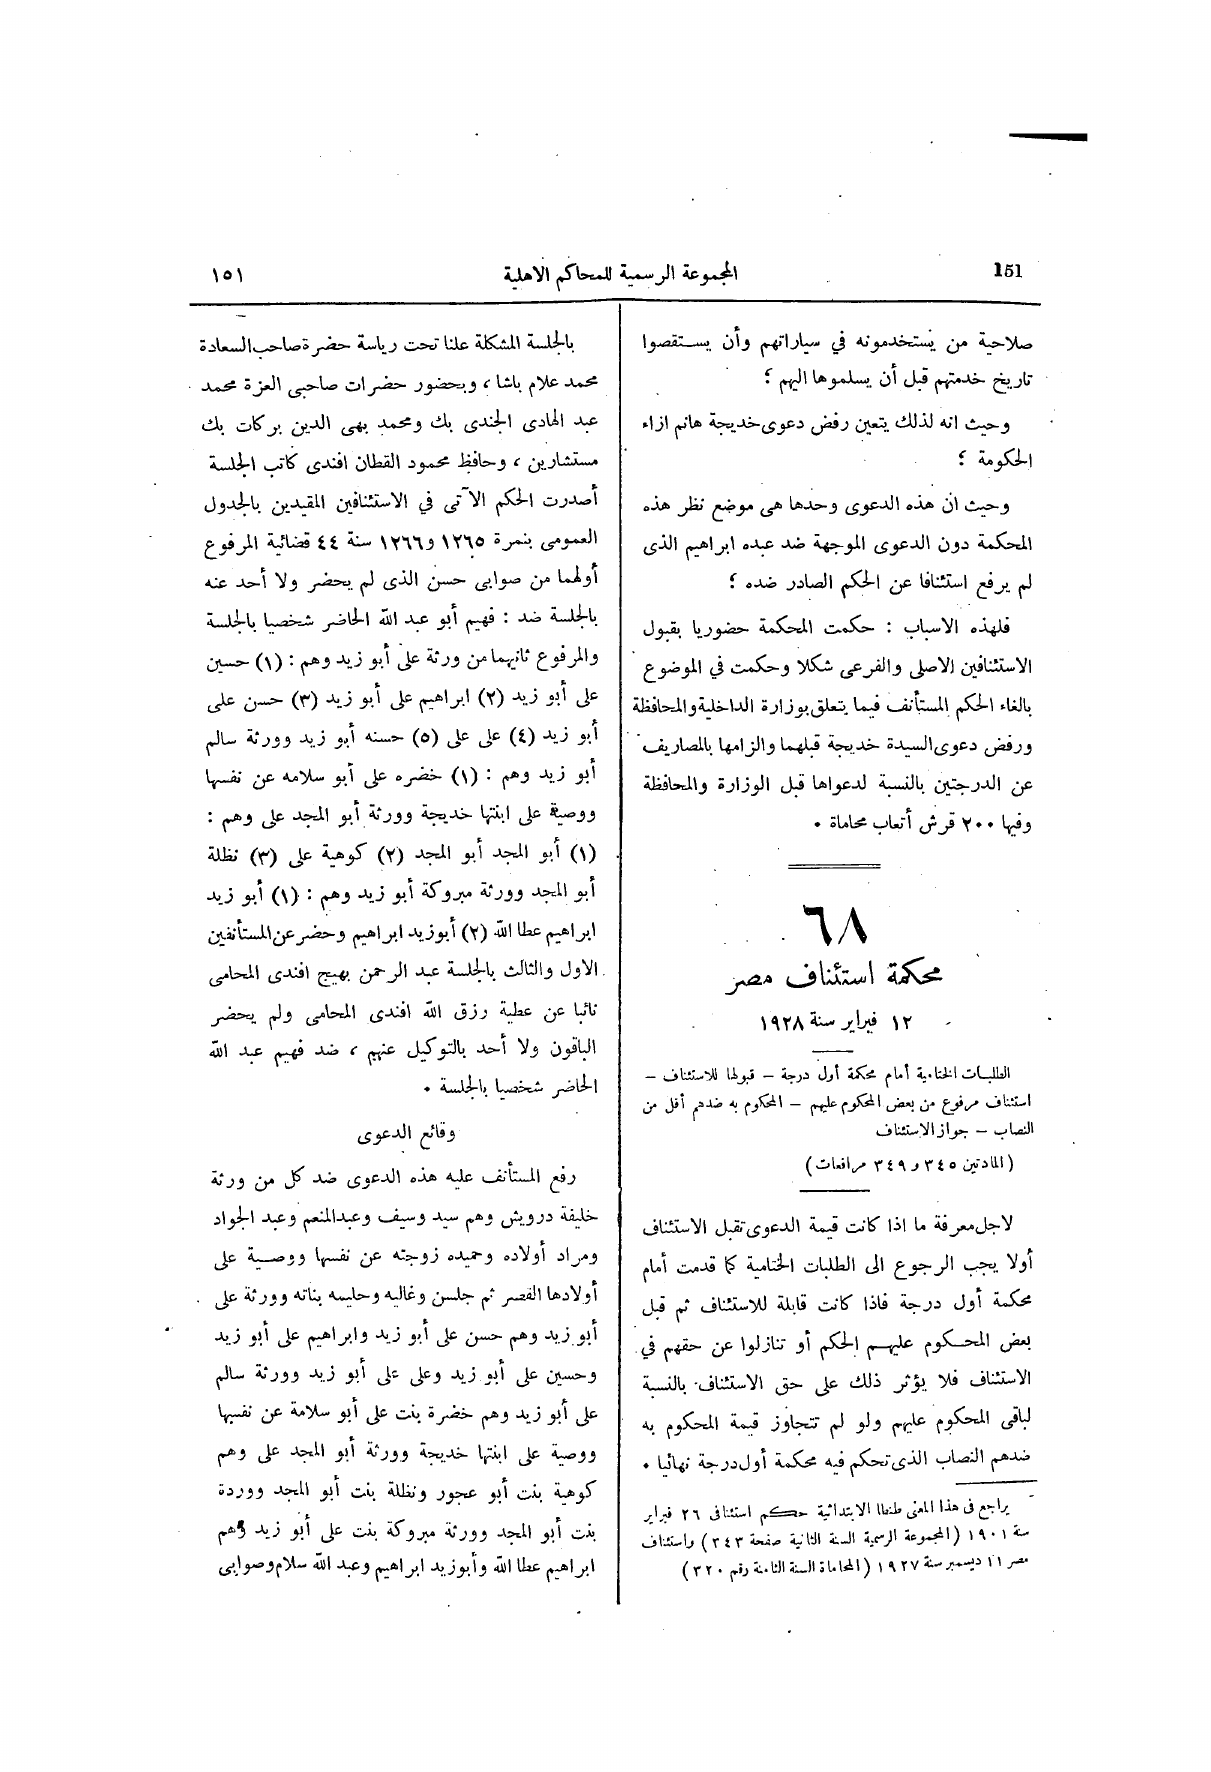 151
المجموعة الرسمية للمحاكم الاهلية
١٥١
صلاحية من يستخدمونه في سياراتهم وأن يستقصوا
تاريخ خدمتهم قبل أن يسلموها اليهم ؛
وحيث انه لذلك يتعين رفض دعوى خديجة هانم ازاء
الحكومة ؛
وحيث ان هذه الدعوى وحدها هى موضع نظر هذه
المحكمة دون الدعوى الموجهة ضد عبده ابراهيم الذى
لم يرفع استئنافا عن الحكم الصادر ضده ؛
فلهذه الاسباب : حكمت المحكمة حضوريا بقبول
الاستئنافين الاصلى والفرعى شكلا وحكمت في الموضوع
بالغاء الحكم المستأنف فيما يتعلق بوزارة الداخلية والمحافظة
ورفض دعوى السيدة خديجة قبلهما والزامها بالمصاريف
عن الدرجتين بالنسبة لدعواها قبل الوزارة والمحافظة
وفيها ٢٠٠ قرش أتعاب محاماة .
٦٨
محكمة استئناف مصر
١٢ فبراير سنة ١٩٢٨
الطلبات الختامية أمام محكمة أول درجة – قبولها للاستئناف –
استئناف مرفوع من بعض المحكوم عليهم – المحكوم به ضدهم أقل من
النصاب – جواز الاستئناف
( المادتين ٣٤٥ و ٣٤٩ مرافعات )
لاجل معرفة ما اذا كانت قيمة الدعوى تقبل الاستئناف
أولا يجب الرجوع الى الطلبات الختامية كما قدمت أمام
محكمة أول درجة فاذا كانت قابلة للاستئناف ثم قبل
بعض المحكوم عليهم الحكم أو تنازلوا عن حقهم في
الاستئناف فلا يؤثر ذلك على حق الاستئناف بالنسبة
لباقى المحكوم عليهم ولو لم تتجاوز قيمة المحكوم به
ضدهم النصاب الذى تحكم فيه محكمة أول درجة نهائيا .
يراجع فى هذا المعنى طنطا الابتدائية حكم استئنافى ٢٦ فبراير
سنة ١٩٠١ ( المجموعة الرسمية السنة الثانية صفحة ٣٤٣ ) واستئناف
مصر ١١ ديسمبر سنة ١٩٢٧ ( المحاماة السنة الثامنة رقم ٣٢٠ )
بالجلسة المشكلة علنا تحت رياسة حضرة صاحب السعادة
محمد علام باشا ، وبحضور حضرات صاحبى العزة محمد
عبد الهادى الجندى بك ومحمد بهى الدين بركات بك
مستشارين ، وحافظ محمود القطان افندى كاتب الجلسة
أصدرت الحكم الآتى في الاستئنافين المقيدين بالجدول
العمومى بنمرة ١٢٦٥ و ١٢٦٦ سنة ٤٤ قضائية المرفوع
أولهما من صوابى حسن الذى لم يحضر ولا أحد عنه
بالجلسة ضد : فهيم أبو عبد الله الحاضر شخصيا بالجلسة
والمرفوع ثانيهما من ورثة على أبو زيد وهم : (١) حسين
على أبو زيد (٢) ابراهيم على أبو زيد (٣) حسن على
أبو زيد (٤) على على (٥) حسنه أبو زيد وورثة سالم
أبو زيد وهم : (١) خضره على أبو سلامه عن نفسها
ووصية على ابنتها خديجة وورثة أبو المجد على وهم :
(١) أبو المجد أبو المجد (٢) كوهية على (٣) نظلة
أبو المجد وورثة مبروكة أبو زيد وهم : (١) أبو زيد
ابراهيم عطا الله (٢) أبوزيد ابراهيم وحضر عن المستأنفين
الاول والثالث بالجلسة عبد الرحمن بهيج افندى المحامى
نائبا عن عطية رزق الله افندى المحامى ولم يحضر
الباقون ولا أحد بالتوكيل عنهم ، ضد فهيم عبد الله
الحاضر شخصيا بالجلسة .
وقائع الدعوى
رفع المستأنف عليه هذه الدعوى ضد كل من ورثة
خليفة درويش وهم سيد وسيف وعبدالمنعم وعبد الجواد
ومراد أولاده وحميده زوجته عن نفسها ووصية على
أولادها القصر ثم جلسن وغاليه وحليمه بناته وورثة على
أبو زيد وهم حسن على أبو زيد وابراهيم على أبو زيد
وحسين على أبو زيد وعلى على أبو زيد وورثة سالم
على أبو زيد وهم خضرة بنت على أبو سلامة عن نفسها
ووصية على ابنتها خديجة وورثة أبو المجد على وهم
كوهية بنت أبو عجور ونظلة بنت أبو المجد ووردة
بنت أبو المجد وورثة مبروكة بنت على أبو زيد وهم
ابراهيم عطا الله وأبوزيد ابراهيم وعبد الله سلام وصوابى